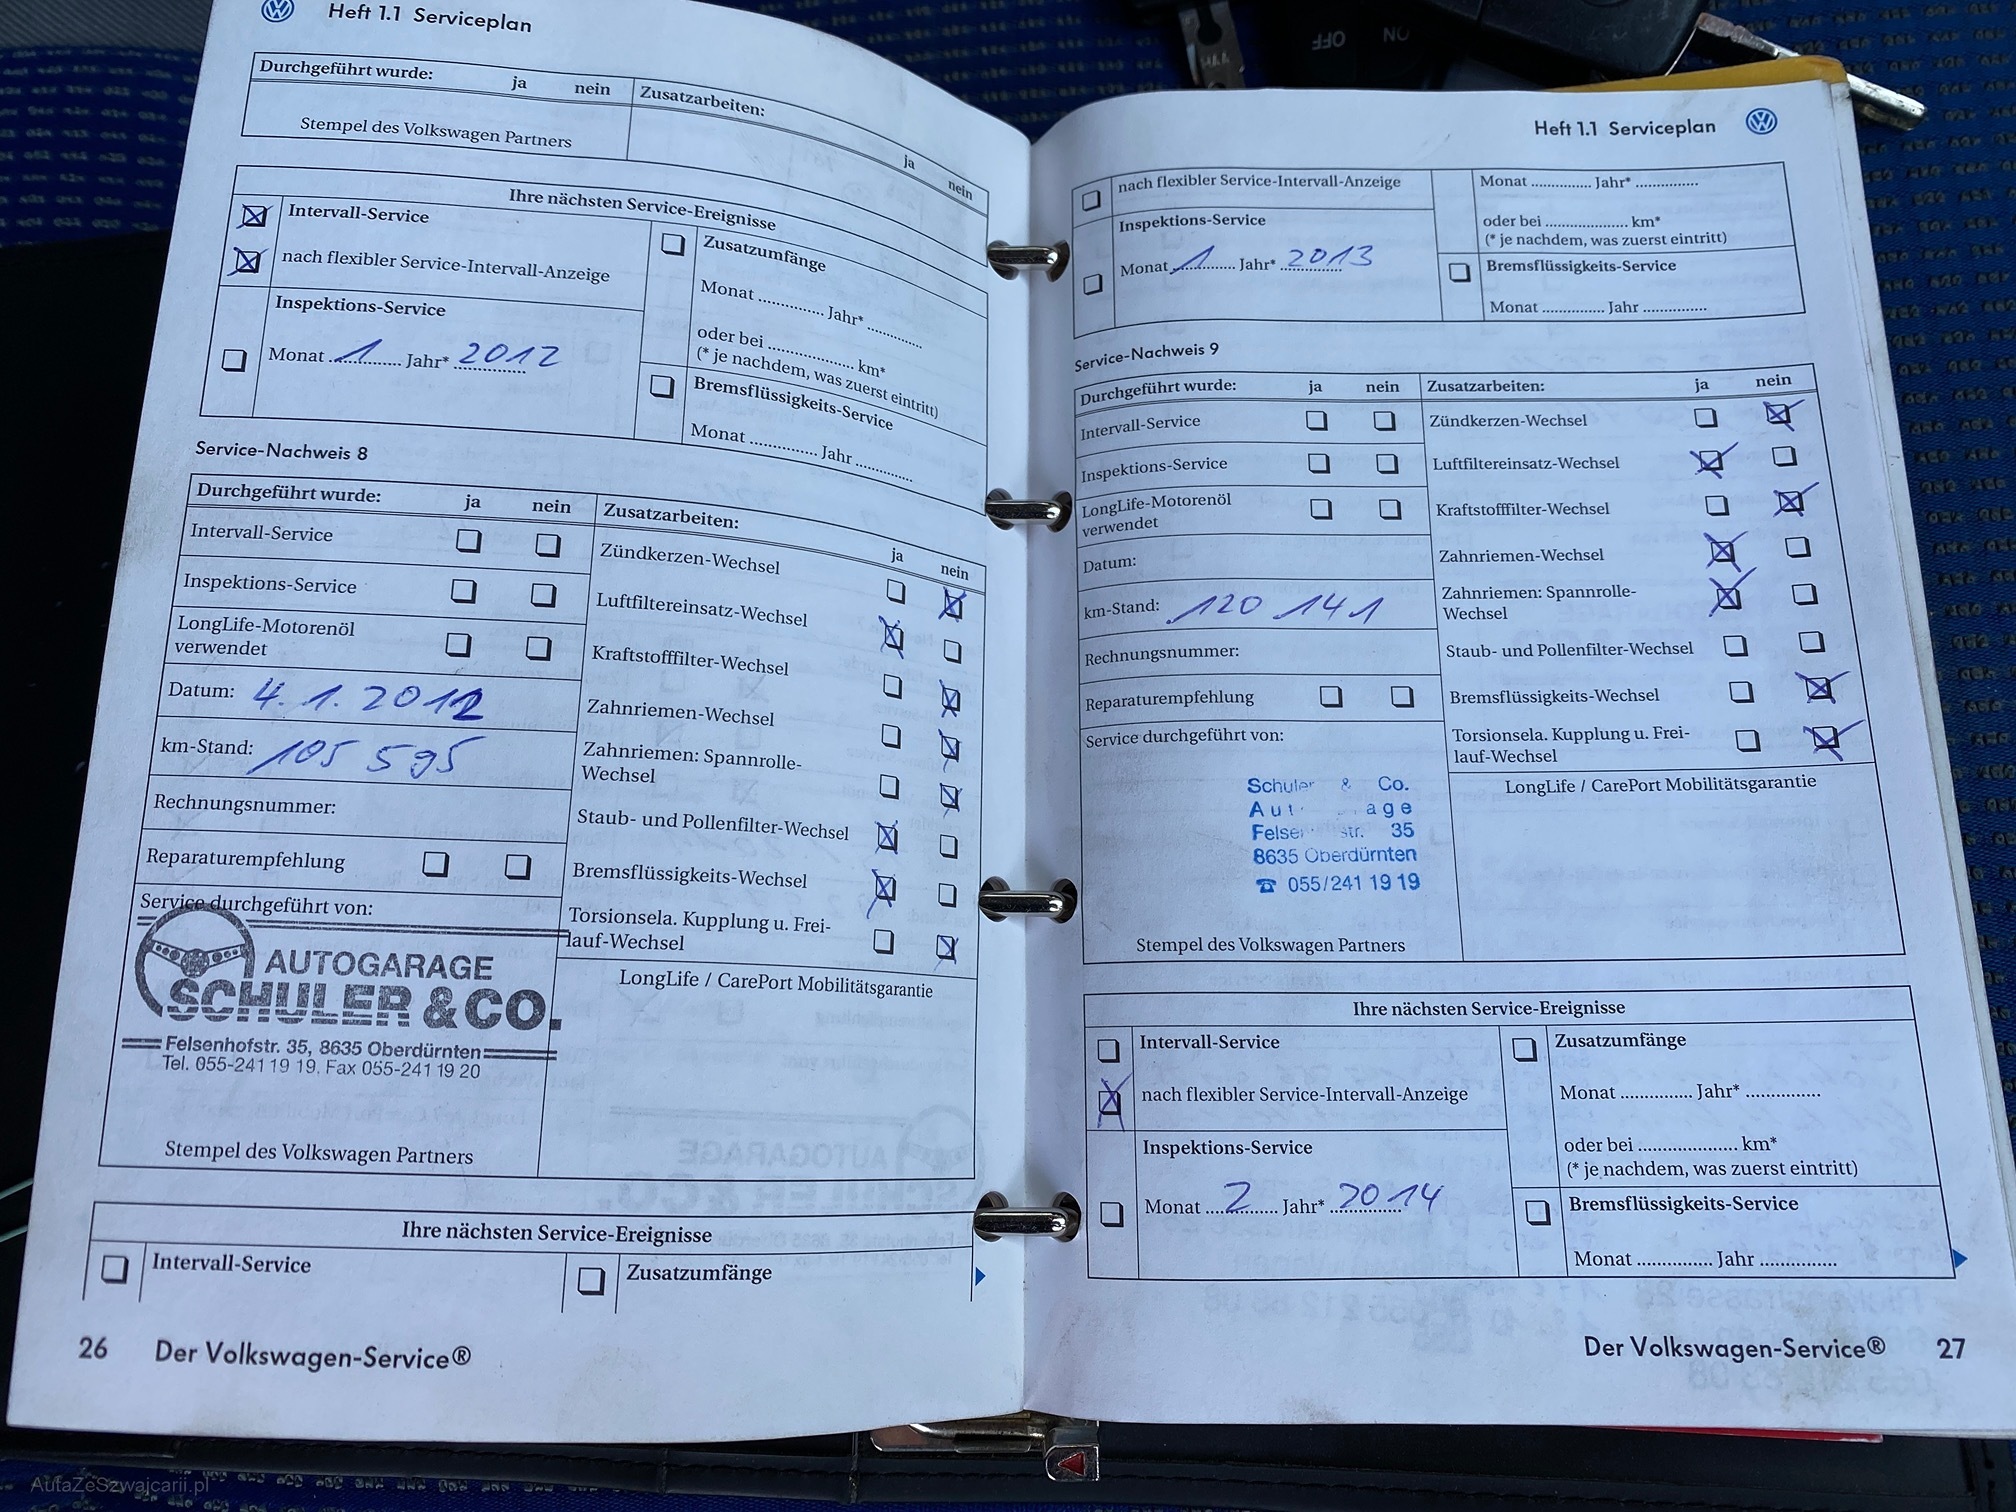 Heft 1.1 Serviceplan
Durchgeführt wurde: ja nein Zusatzarbeiten:
ja nein
Stempel des Volkswagen Partners
Ihre nächsten Service-Ereignisse
Intervall-Service
nach flexibler Service-Intervall-Anzeige
Inspektions-Service
Monat 1 Jahr* 2012
Zusatzumfänge
Monat ............. Jahr* ...........
oder bei .................. km*
(* je nachdem, was zuerst eintritt)
Bremsflüssigkeits-Service
Monat .............. Jahr ............
Service-Nachweis 8
Durchgeführt wurde: ja nein
Intervall-Service
Inspektions-Service
LongLife-Motorenöl
verwendet
Datum: 4.1.2012
km-Stand: 105 595
Rechnungsnummer:
Reparaturempfehlung
Service durchgeführt von:
AUTOGARAGE
SCHULER & CO.
Felsenhofstr. 35, 8635 Oberdürnten
Tel. 055-241 19 19, Fax 055-241 19 20
Stempel des Volkswagen Partners
Zusatzarbeiten:
ja nein
Zündkerzen-Wechsel
Luftfiltereinsatz-Wechsel
Kraftstofffilter-Wechsel
Zahnriemen-Wechsel
Zahnriemen: Spannrolle-
Wechsel
Staub- und Pollenfilter-Wechsel
Bremsflüssigkeits-Wechsel
Torsionsela. Kupplung u. Frei-
lauf-Wechsel
LongLife / CarePort Mobilitätsgarantie
Ihre nächsten Service-Ereignisse
Intervall-Service
Zusatzumfänge
26 Der Volkswagen-Service®
Heft 1.1 Serviceplan
nach flexibler Service-Intervall-Anzeige
Inspektions-Service
Monat 1 Jahr* 2013
Monat .............. Jahr* ...............
oder bei .................... km*
(* je nachdem, was zuerst eintritt)
Bremsflüssigkeits-Service
Monat .............. Jahr ...............
Service-Nachweis 9
Durchgeführt wurde: ja nein
Intervall-Service
Inspektions-Service
LongLife-Motorenöl
verwendet
Datum:
km-Stand: 120 141
Rechnungsnummer:
Reparaturempfehlung
Service durchgeführt von:
Schuler & Co.
35
8635 Oberdürnten
☎ 055/241 19 19
Stempel des Volkswagen Partners
Zusatzarbeiten: ja nein
Zündkerzen-Wechsel
Luftfiltereinsatz-Wechsel
Kraftstofffilter-Wechsel
Zahnriemen-Wechsel
Zahnriemen: Spannrolle-
Wechsel
Staub- und Pollenfilter-Wechsel
Bremsflüssigkeits-Wechsel
Torsionsela. Kupplung u. Frei-
lauf-Wechsel
LongLife / CarePort Mobilitätsgarantie
Ihre nächsten Service-Ereignisse
Intervall-Service
nach flexibler Service-Intervall-Anzeige
Inspektions-Service
Monat 2 Jahr* 2014
Zusatzumfänge
Monat ................ Jahr* ................
oder bei ...................... km*
(* je nachdem, was zuerst eintritt)
Bremsflüssigkeits-Service
Monat ................ Jahr .................
Der Volkswagen-Service® 27
OFF ON
AutaZeSzwajcarii.pl